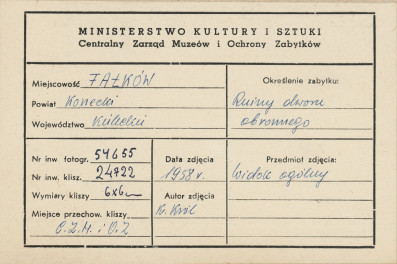 MINISTERSTWO KULTURY I SZTUKI
Centralny Zarząd Muzeów i Ochrony Zabytków
Miejscowość FAŁKÓW
Powiat Konecki
Województwo Kielecki
Określenie zabytku:
Ruiny dworu
obronnego
Nr inw fotogr. 54655
Nr inw. klisz. 24722
Wymiary kliszy 6x6
Miejsce przechow. kliszy
C.Z.M. i O.Z
Data zdjęcia
1958 r.
Autor zdjęcia
K. Król
Przedmiot zdjęcia:
Widok ogólny